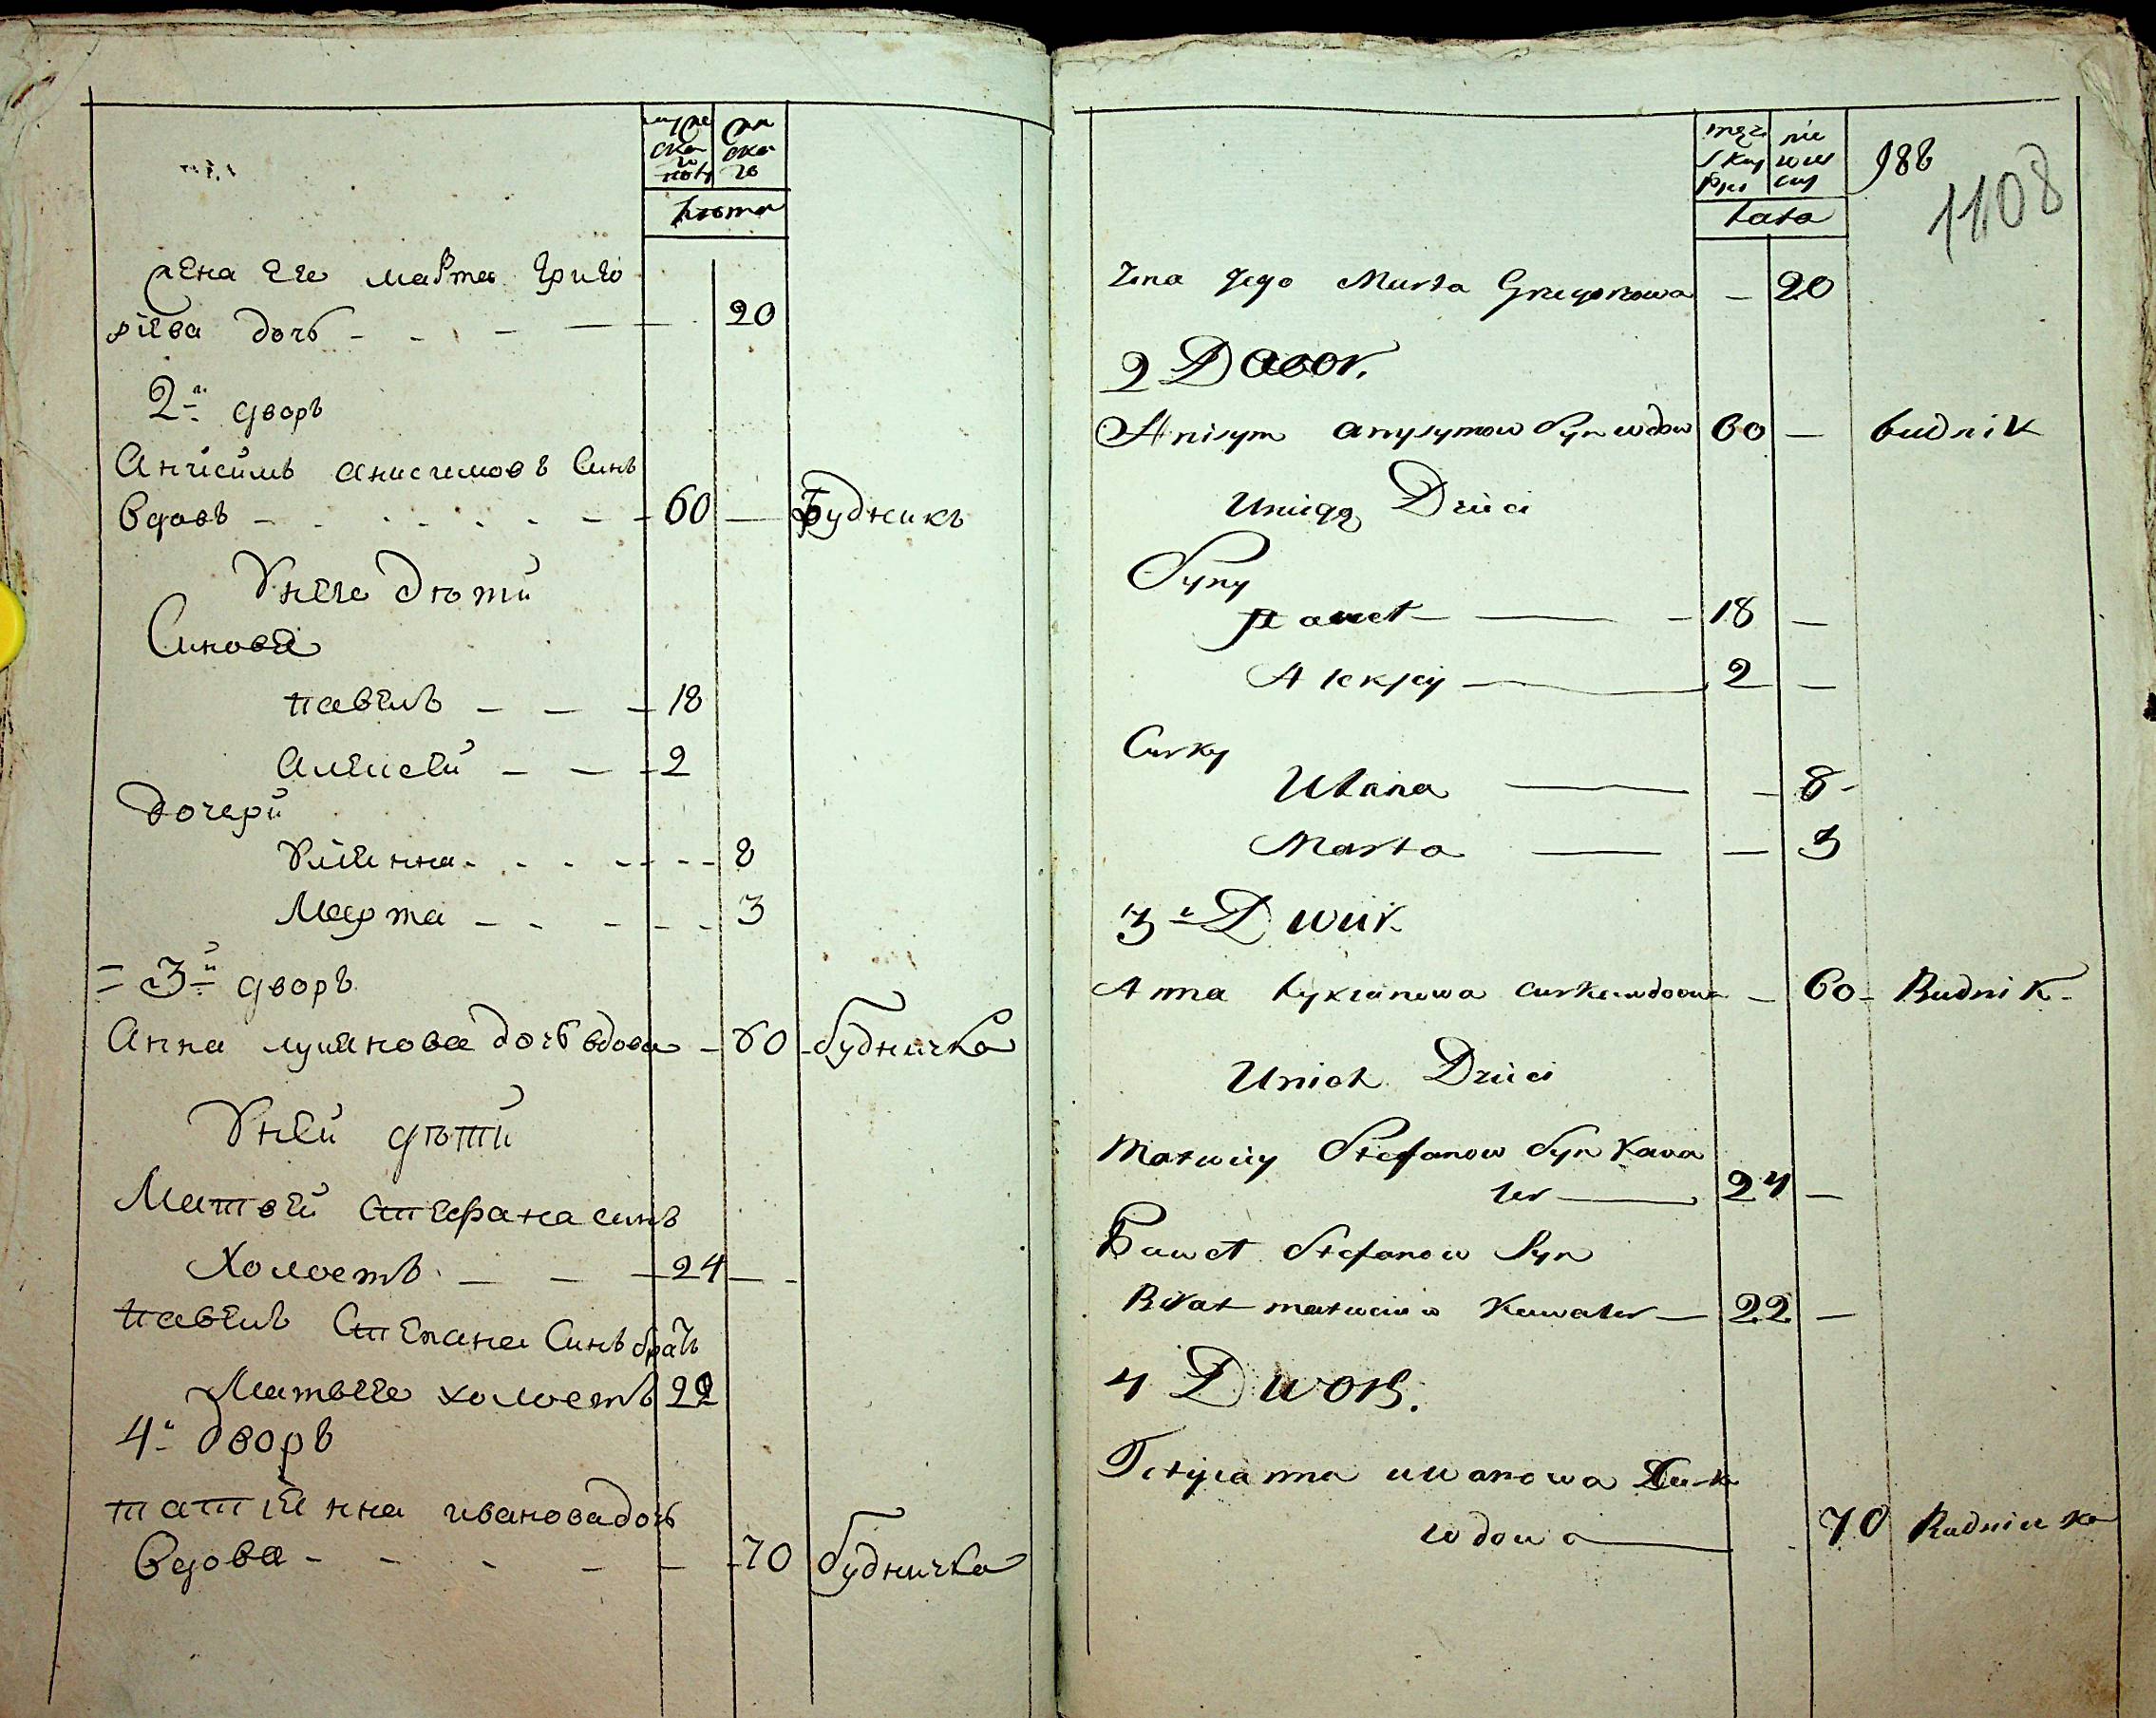 муже
ска
го
полу
жен
ска
го
Лѣта
жена Его марта Григо
риева дочь - - - - 20
2й дворъ
Анисимъ анисимовъ Синъ
Вдовъ - - - - - - 60 — Будникъ
У него дѣти
Синовя
павелъ — — — 18
Алексей — — — 2
Дочери
Улиянна - - - - - - 8
Марта — - - - - 3
= 3й дворъ
Анна лукянова дочь вдова - 60 - будничка
У ней дѣти
Матвей Стефана синъ
Холостъ - — — — 24 — -
павелъ Степана Синъ братъ
Матвея холостъ 22
4й дворъ
татиянна иванова дочь
Вдова - - - — — - 70 будничка
męz
skey
płci
nie
wies
ciey
986
1108
Lata
Zona Jego Marta Gregorowa — 20
2 Dwor.
Anisym anysymow Syn wdow 60 — budnik
Uniego Dzieci
Syny
Paweł — — — 18 —
Alexjey — 2 —
Curky
Ulana — — 8 -
Marta — — 3
3й Dwur
Anna Lukianowa curka wdowa — 60 - Budnik -
Unich Dzieci
Matwiiy Stefanow Syn Kawa
ler — 24 —
Paweł Stefanow Syn
Brat matwiiow Kawaler — 22 —
4 Dwor.
Tetyianna iwanowa Curk
wdowa — - 70 Budniczka